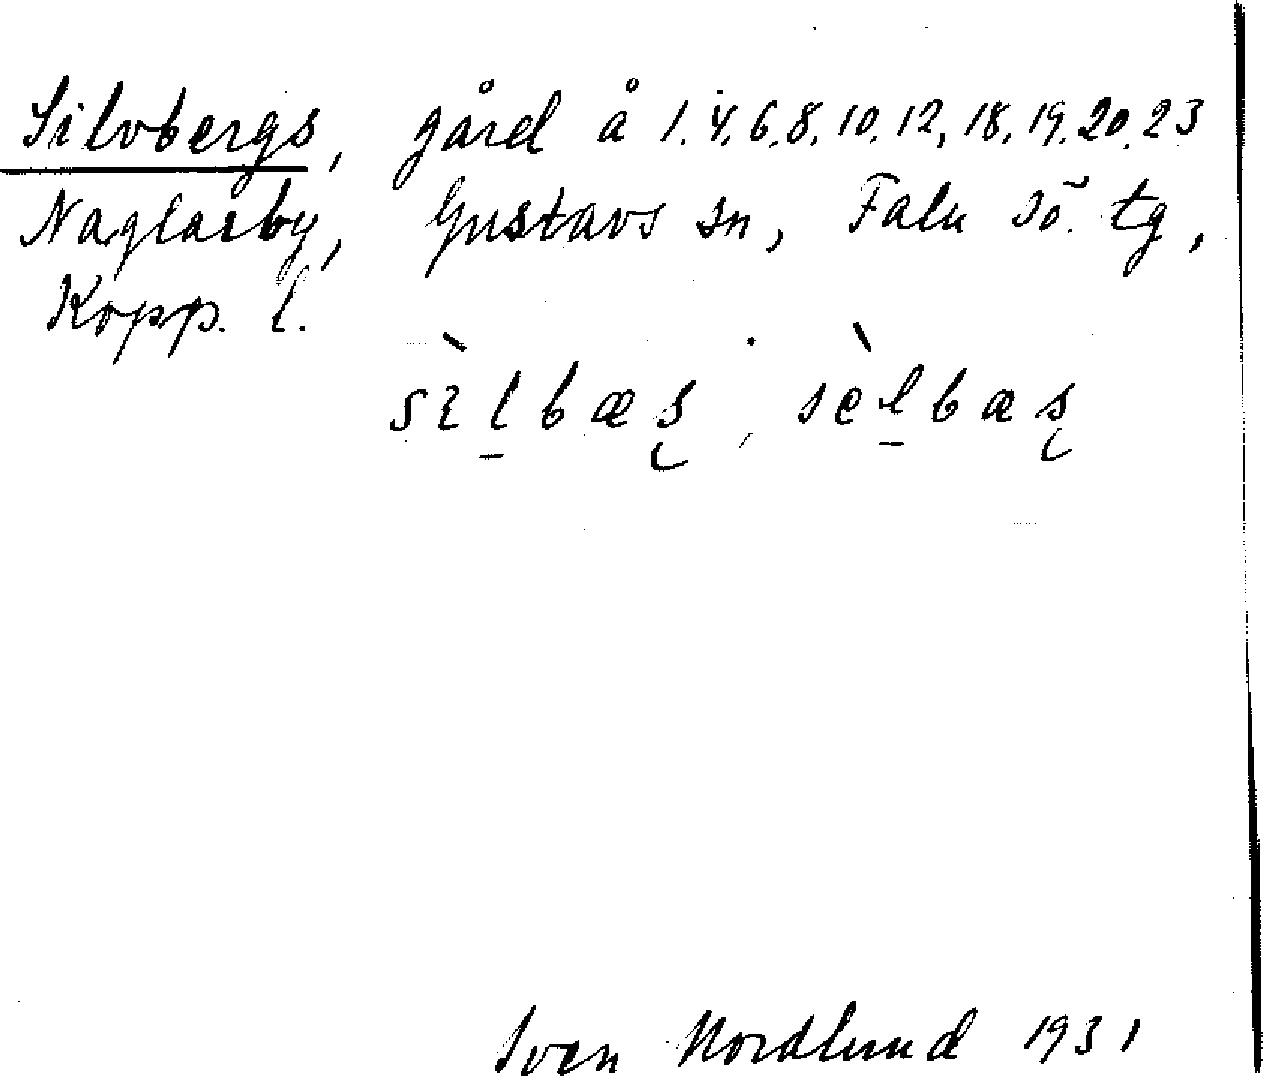 Silvbergs, gård å 1.4.6.8.10.12,18.19.20.23
Naglarby, Gustavs sn, Falu sö. tg,
Kopp. l.
sìl̠bæʂ, sèl̠bæʂ
Sven Nordlund 1931